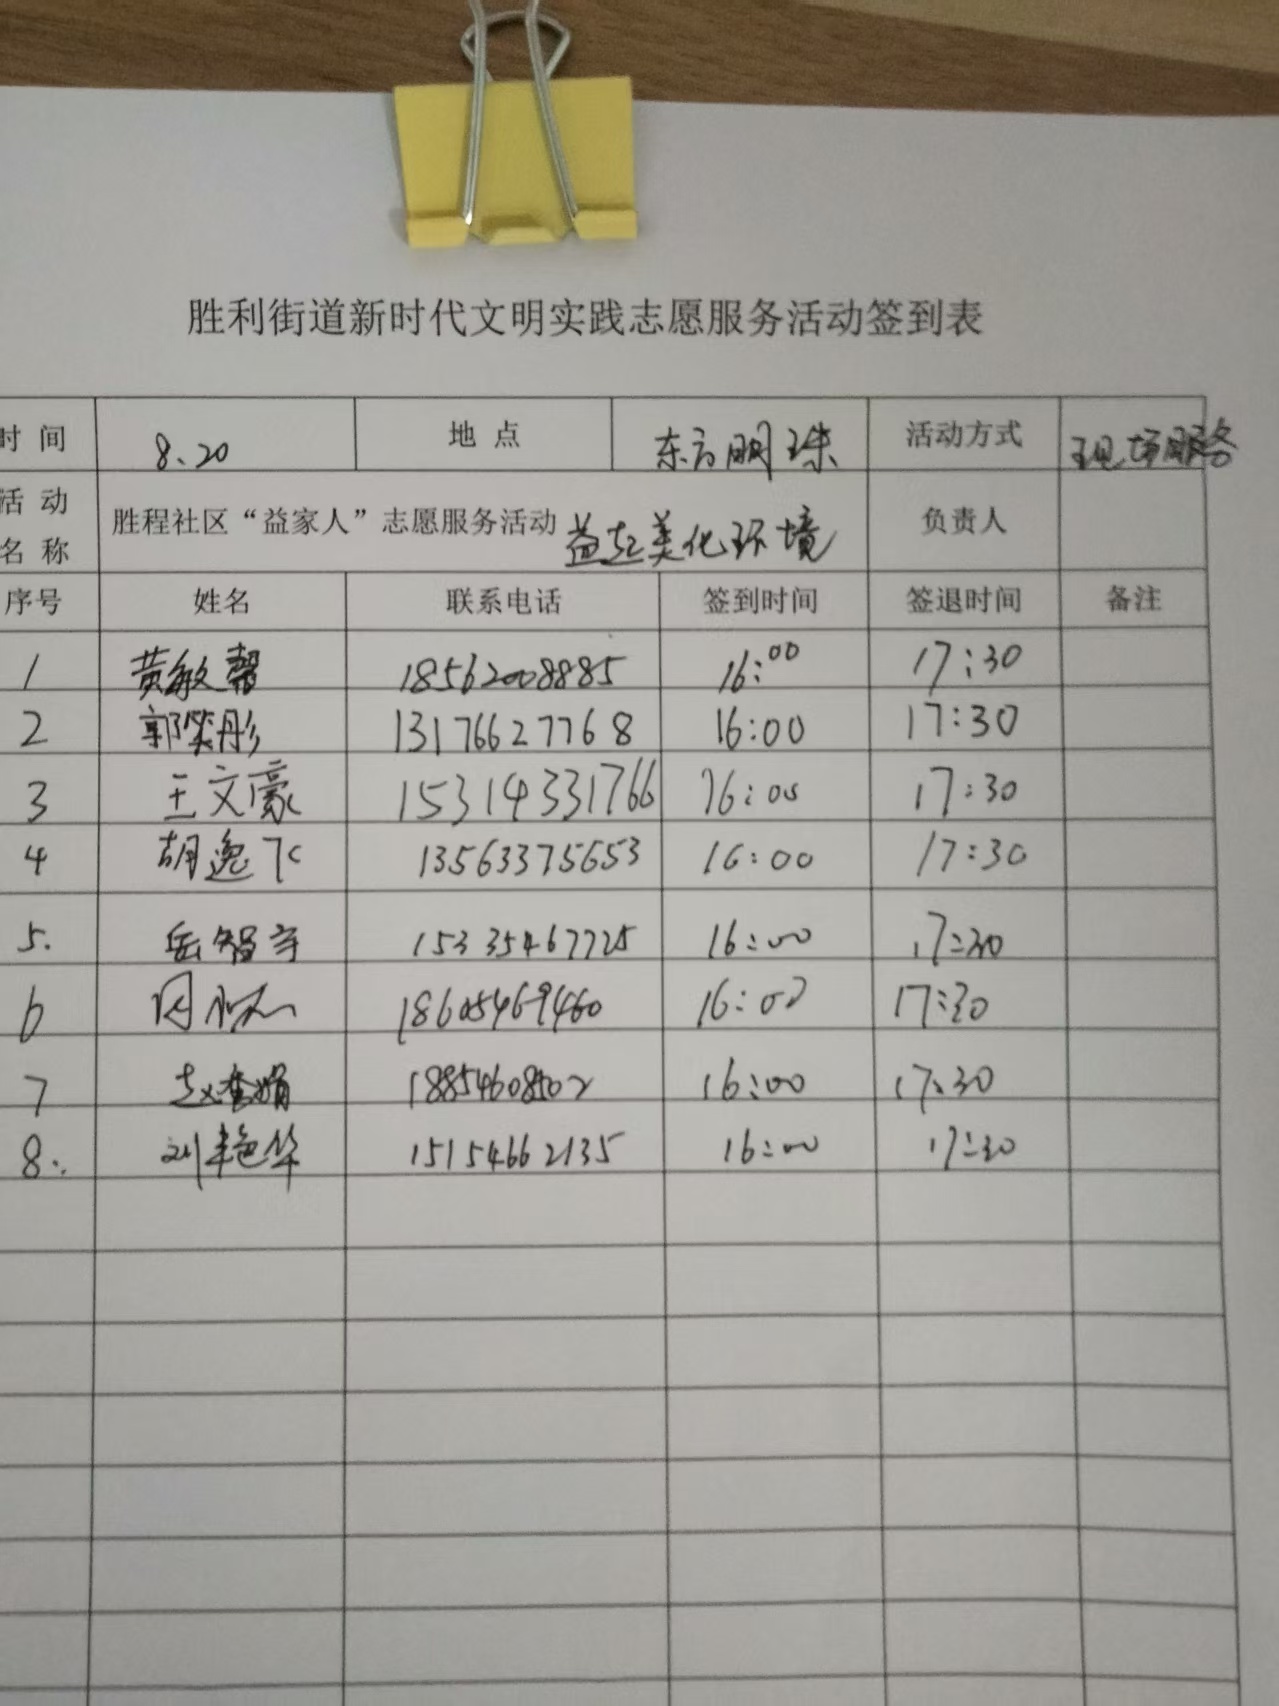 胜利街道新时代文明实践志愿服务活动签到表
时间 8.20 地点 东方明珠 活动方式 现场服务
活动名称 胜程社区“益家人”志愿服务活动 益起美化环境 负责人
序号 姓名 联系电话 签到时间 签退时间 备注
1 黄敏馨 18562008885 16:00 17:30
2 郭笑彤 13176627768 16:00 17:30
3 王文豪 15314331766 16:00 17:30
4 胡逸飞 13563375653 16:00 17:30
5. 岳智宇 15335467725 16:00 17:30
6 周 18605469460 16:00 17:30
7 赵春娟 18854608502 16:00 17:30
8. 刘艳华 15154662135 16:00 17:30